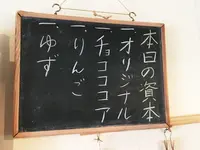 本日の資本
一オリジナル
一チョコココア
一りんご
一ゆず